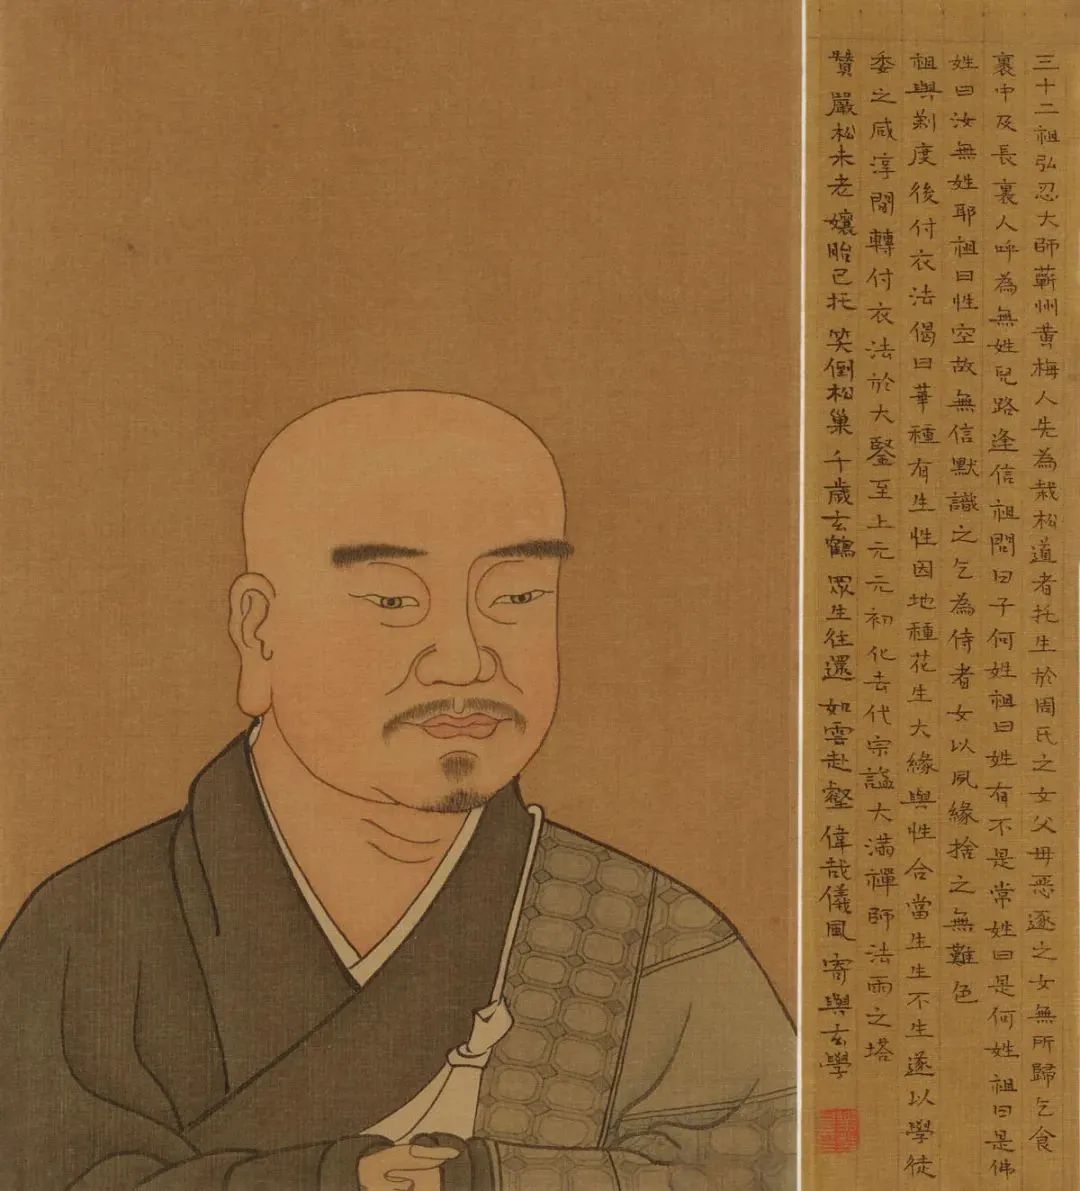 三十二祖弘忍大師蘄州黄梅人先為栽松道者托生於周氏之女父母惡逐之女無所歸乞食
裏中及長裏人呼為無姓兒路逢信祖問曰子何姓祖曰姓有不是常姓曰是何姓祖曰是佛
姓曰汝無姓耶祖曰性空故無信默識之乞為侍者女以夙緣捨之無難色
祖與剃度後付衣法偈曰華種有生性因地種花生大緣與性合當生生不生遂以學徒
委之咸淳間轉付衣法於大鑒至上元元初化去代宗謚大滿禪師法雨之塔
贊嚴松未老孃胎已托笑倒松巢千歲玄鶴眾生往還如雲赴壑偉哉儀風寄與玄學